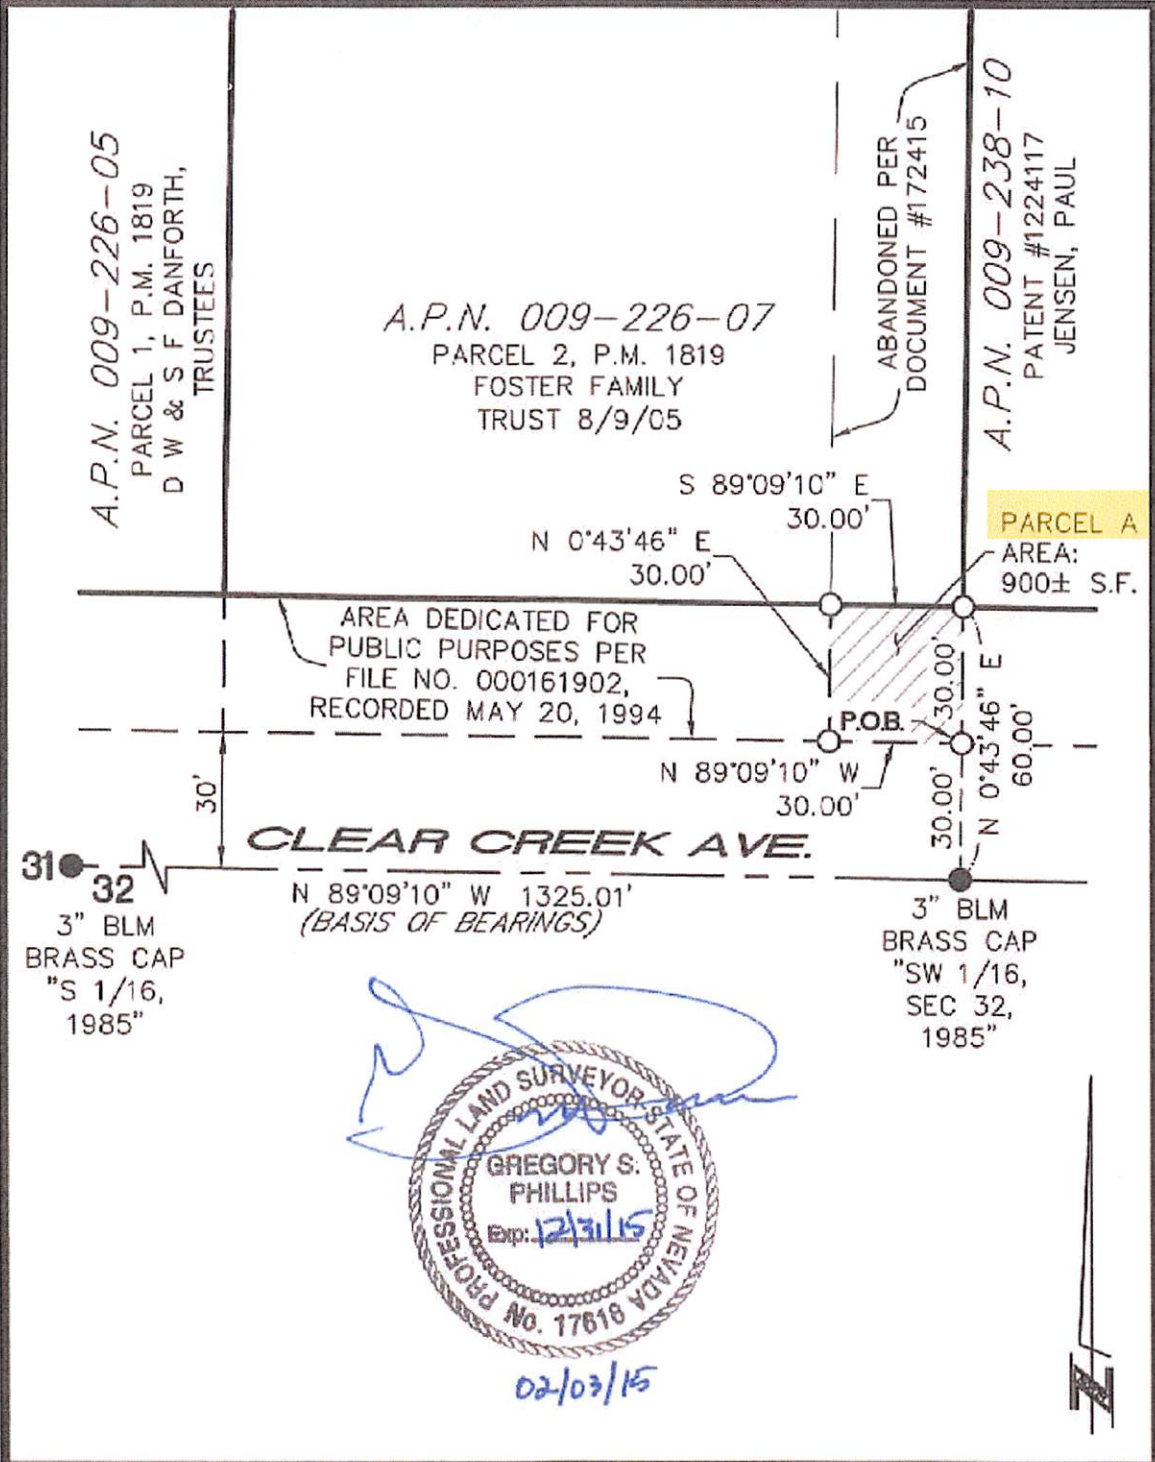 A.P.N. 009-226-05
PARCEL 1, P.M. 1819
D W & S F DANFORTH,
TRUSTEES
A.P.N. 009-226-07
PARCEL 2, P.M. 1819
FOSTER FAMILY
TRUST 8/9/05
ABANDONED PER
DOCUMENT #172415
A.P.N. 009-238-10
PATENT #1224117
JENSEN, PAUL
S 89°09'10" E
30.00'
N 0°43'46" E
30.00'
PARCEL A
AREA:
900± S.F.
AREA DEDICATED FOR
PUBLIC PURPOSES PER
FILE NO. 000161902,
RECORDED MAY 20, 1994
P.O.B.
30.00'
N 89°09'10" W
30.00'
30.00'
N 0°43'46" E
60.00'
30'
CLEAR CREEK AVE.
N 89°09'10" W 1325.01'
(BASIS OF BEARINGS)
31
32
3" BLM
BRASS CAP
"S 1/16,
1985"
3" BLM
BRASS CAP
"SW 1/16,
SEC 32,
1985"
PROFESSIONAL LAND SURVEYOR STATE OF NEVADA
GREGORY S.
PHILLIPS
Exp: 12/31/15
No. 17616
02/03/15
N